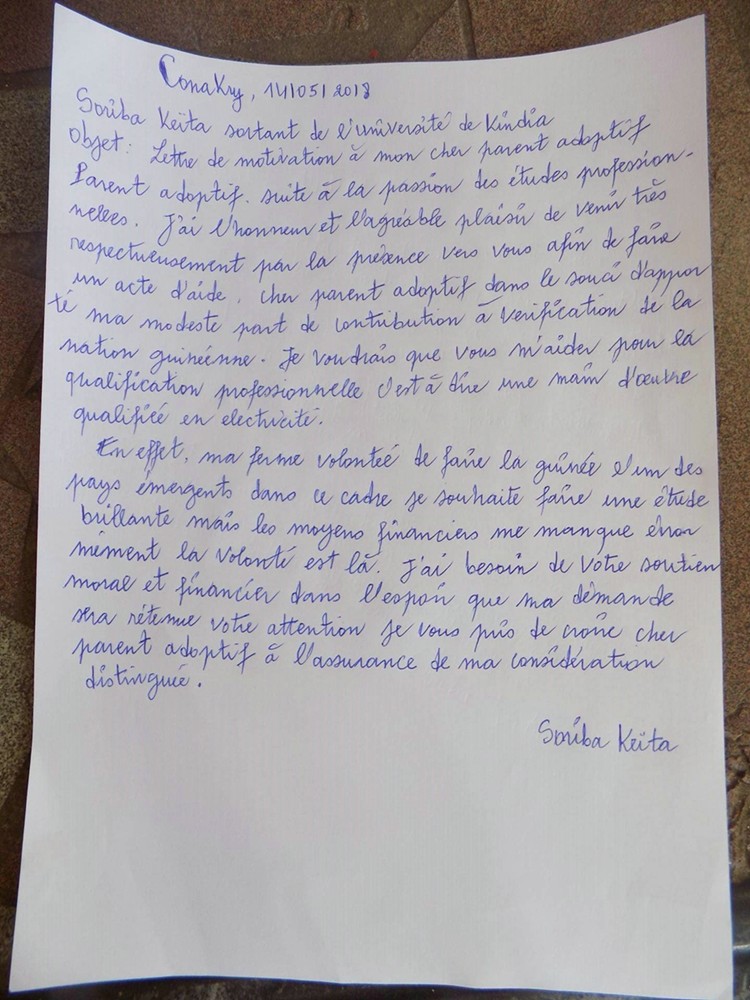 Conakry, 14/05/2018
Soriba Keïta sortant de l'université de Kindia
Objet: Lettre de motivation à mon cher parent adoptif
Parent adoptif. suite à la passion des études profession-
nelles. J'ai l'honneur et l'agréable plaisir de venir très
respectueusement par la présence vers vous afin de faire
un acte d'aide. cher parent adoptif dans le souci d'appor
té ma modeste part de contribution à verification de la
nation guinéenne. Je voudrais que vous m'aider pour la
qualification professionnelle c'est à dire une main d'œuvre
qualifiée en electricité.
En effet, ma ferme volonteé de faire la guinée l'un des
pays émergents dans ce cadre je souhaite faire une étude
brillante mais les moyens financiers me manque énor
mément la volonté est là. J'ai besoin de votre soutien
moral et financier dans l'espoir que ma démande
sera rétenue votre attention je vous pris de croire cher
parent adoptif à l'assurance de ma considération
distinguée.
Soriba Keïta